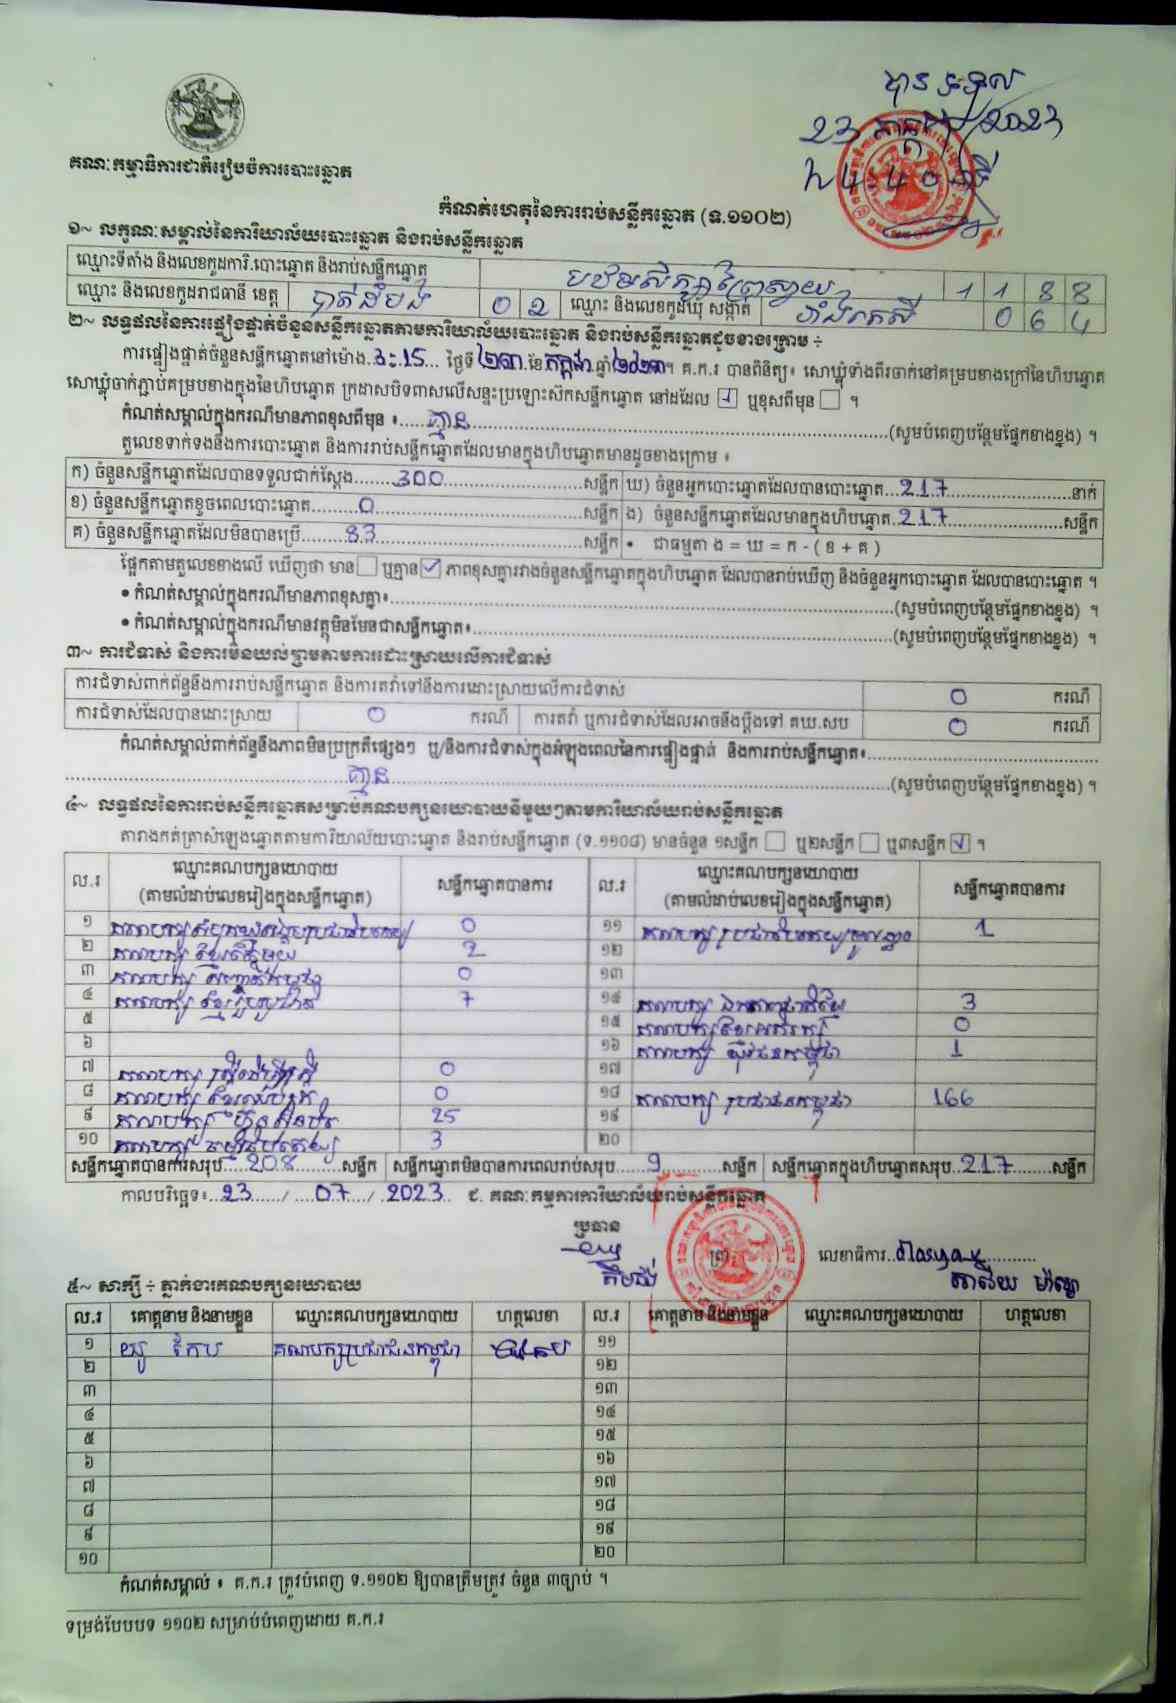 បានទទួល
23 កក្កដា 2023
ម៉ 4 40 នាទី
គណៈកម្មាធិការជាតិរៀបចំការបោះឆ្នោត
កំណត់ហេតុនៃការរាប់សន្លឹកឆ្នោត (ទ.១១០២)
១~ លក្ខណៈសម្គាល់នៃការិយាល័យបោះឆ្នោត និងរាប់សន្លឹកឆ្នោត
ឈ្មោះទីតាំង និងលេខកូដការិ.បោះឆ្នោត និងរាប់សន្លឹកឆ្នោត បឋមសិក្សាព្រៃស្វាយ 1 1 8 8
ឈ្មោះ និងលេខកូដរាជធានី ខេត្ត បាត់ដំបង 0 2 ឈ្មោះ និងលេខកូដឃុំ សង្កាត់ 0 6 4
២~ លទ្ធផលនៃការផ្ទៀងផ្ទាត់ចំនួនសន្លឹកឆ្នោតតាមការិយាល័យបោះឆ្នោត និងរាប់សន្លឹកឆ្នោតដូចខាងក្រោម ÷
ការផ្ទៀងផ្ទាត់ចំនួនសន្លឹកឆ្នោតនៅម៉ោង 3:15 ថ្ងៃទី ២៣ ខែ កក្កដា ឆ្នាំ ២០២៣។ គ.ក.រ បានពិនិត្យ៖ សោឃ្លុំទាំងពីរចាក់នៅគម្របខាងក្រៅនៃហិបឆ្នោត
សោឃ្លុំចាក់ភ្ជាប់គម្របខាងក្នុងនៃហិបឆ្នោត ក្រដាសបិទពាសលើសន្ទះប្រឡោះស៊កសន្លឹកឆ្នោត នៅដដែល ☑ ឬខុសពីមុន ☐ ។
កំណត់សម្គាល់ក្នុងករណីមានភាពខុសពីមុន ៖ គ្មាន (សូមបំពេញបន្ថែមផ្នែកខាងខ្នង) ។
តួលេខទាក់ទងនឹងការបោះឆ្នោត និងការរាប់សន្លឹកឆ្នោតដែលមានក្នុងហិបឆ្នោតមានដូចខាងក្រោម ៖
ក) ចំនួនសន្លឹកឆ្នោតដែលបានទទួលជាក់ស្តែង 300 សន្លឹក ឃ) ចំនួនអ្នកបោះឆ្នោតដែលបានបោះឆ្នោត 217 នាក់
ខ) ចំនួនសន្លឹកឆ្នោតខូចពេលបោះឆ្នោត 0 សន្លឹក ង) ចំនួនសន្លឹកឆ្នោតដែលមានក្នុងហិបឆ្នោត 217 សន្លឹក
គ) ចំនួនសន្លឹកឆ្នោតដែលមិនបានប្រើ 83 សន្លឹក • ជាធម្មតា ង = ឃ = ក - ( ខ + គ )
ផ្អែកតាមតួលេខខាងលើ ឃើញថា មាន ☐ ឬគ្មាន ☑ ភាពខុសគ្នារវាងចំនួនសន្លឹកឆ្នោតក្នុងហិបឆ្នោត ដែលបានរាប់ឃើញ និងចំនួនអ្នកបោះឆ្នោត ដែលបានបោះឆ្នោត ។
• កំណត់សម្គាល់ក្នុងករណីមានភាពខុសគ្នា៖ (សូមបំពេញបន្ថែមផ្នែកខាងខ្នង) ។
• កំណត់សម្គាល់ក្នុងករណីមានវត្ថុមិនមែនជាសន្លឹកឆ្នោត៖ (សូមបំពេញបន្ថែមផ្នែកខាងខ្នង) ។
៣~ ការជំទាស់ និងការមិនយល់ព្រមតាមការដោះស្រាយលើការជំទាស់
ការជំទាស់ពាក់ព័ន្ធនឹងការរាប់សន្លឹកឆ្នោត និងការតវ៉ាទៅនឹងការដោះស្រាយលើការជំទាស់ 0 ករណី
ការជំទាស់ដែលបានដោះស្រាយ 0 ករណី ការតវ៉ា ឬការជំទាស់ដែលអាចនឹងប្តឹងទៅ គឃ.សប 0 ករណី
កំណត់សម្គាល់ពាក់ព័ន្ធនឹងភាពមិនប្រក្រតីផ្សេងៗ ឬ/និងការជំទាស់ក្នុងអំឡុងពេលនៃការផ្ទៀងផ្ទាត់ និងការរាប់សន្លឹកឆ្នោត៖
គ្មាន (សូមបំពេញបន្ថែមផ្នែកខាងខ្នង) ។
៤~ លទ្ធផលនៃការរាប់សន្លឹកឆ្នោតសម្រាប់គណបក្សនយោបាយនីមួយៗតាមការិយាល័យរាប់សន្លឹកឆ្នោត
តារាងកត់ត្រាសំឡេងឆ្នោតតាមការិយាល័យបោះឆ្នោត និងរាប់សន្លឹកឆ្នោត (ទ.១១០៨) មានចំនួន ១សន្លឹក ☐ ឬ២សន្លឹក ☐ ឬ៣សន្លឹក ☑ ។
ល.រ ឈ្មោះគណបក្សនយោបាយ (តាមលំដាប់លេខរៀងក្នុងសន្លឹកឆ្នោត) សន្លឹកឆ្នោតបានការ ល.រ ឈ្មោះគណបក្សនយោបាយ (តាមលំដាប់លេខរៀងក្នុងសន្លឹកឆ្នោត) សន្លឹកឆ្នោតបានការ
១ គណបក្ស សំបុកឃ្មុំសង្គមប្រជាធិបតេយ្យ 0 ១១ គណបក្ស ប្រជាធិបតេយ្យមូលដ្ឋាន 1
២ គណបក្ស ខ្មែរតែមួយ 2 ១២
៣ គណបក្ស សញ្ជាតិកម្ពុជា 0 ១៣
៤ គណបក្ស ខ្មែររួបរួមជាតិ 7 ១៤ គណបក្ស ឯកភាពជាតិខ្មែរ 3
៥ ១៥ គណបក្ស ខ្មែរអភិរក្ស 0
៦ ១៦ គណបក្ស យុវជនកម្ពុជា 1
៧ គណបក្ស ស្ត្រីដើម្បីស្ត្រី 0 ១៧
៨ គណបក្ស ខ្មែរឈប់ក្រ 0 ១៨ គណបក្ស ប្រជាជនកម្ពុជា 166
៩ គណបក្ស ហ្វ៊ុនស៊ិនប៉ិច 25 ១៩
១០ គណបក្ស ធម្មាធិបតេយ្យ 3 ២០
សន្លឹកឆ្នោតបានការសរុប 208 សន្លឹក សន្លឹកឆ្នោតមិនបានការពេលរាប់សរុប 9 សន្លឹក សន្លឹកឆ្នោតក្នុងហិបឆ្នោតសរុប 217 សន្លឹក
កាលបរិច្ឆេទ៖ 23 / 07 / 2023 ជ. គណៈកម្មការការិយាល័យរាប់សន្លឹកឆ្នោត
ប្រធាន
លេខាធិការ
៥~ សាក្សី ÷ ភ្នាក់ងារគណបក្សនយោបាយ
ល.រ គោត្តនាម និងនាមខ្លួន ឈ្មោះគណបក្សនយោបាយ ហត្ថលេខា ល.រ គោត្តនាម និងនាមខ្លួន ឈ្មោះគណបក្សនយោបាយ ហត្ថលេខា
១ យូ កែប គណបក្សប្រជាជនកម្ពុជា ១១
២ ១២
៣ ១៣
៤ ១៤
៥ ១៥
៦ ១៦
៧ ១៧
៨ ១៨
៩ ១៩
១០ ២០
កំណត់សម្គាល់ ៖ គ.ក.រ ត្រូវបំពេញ ទ.១១០២ ឱ្យបានត្រឹមត្រូវ ចំនួន ៣ច្បាប់ ។
ទម្រង់បែបបទ ១១០២ សម្រាប់បំពេញដោយ គ.ក.រ